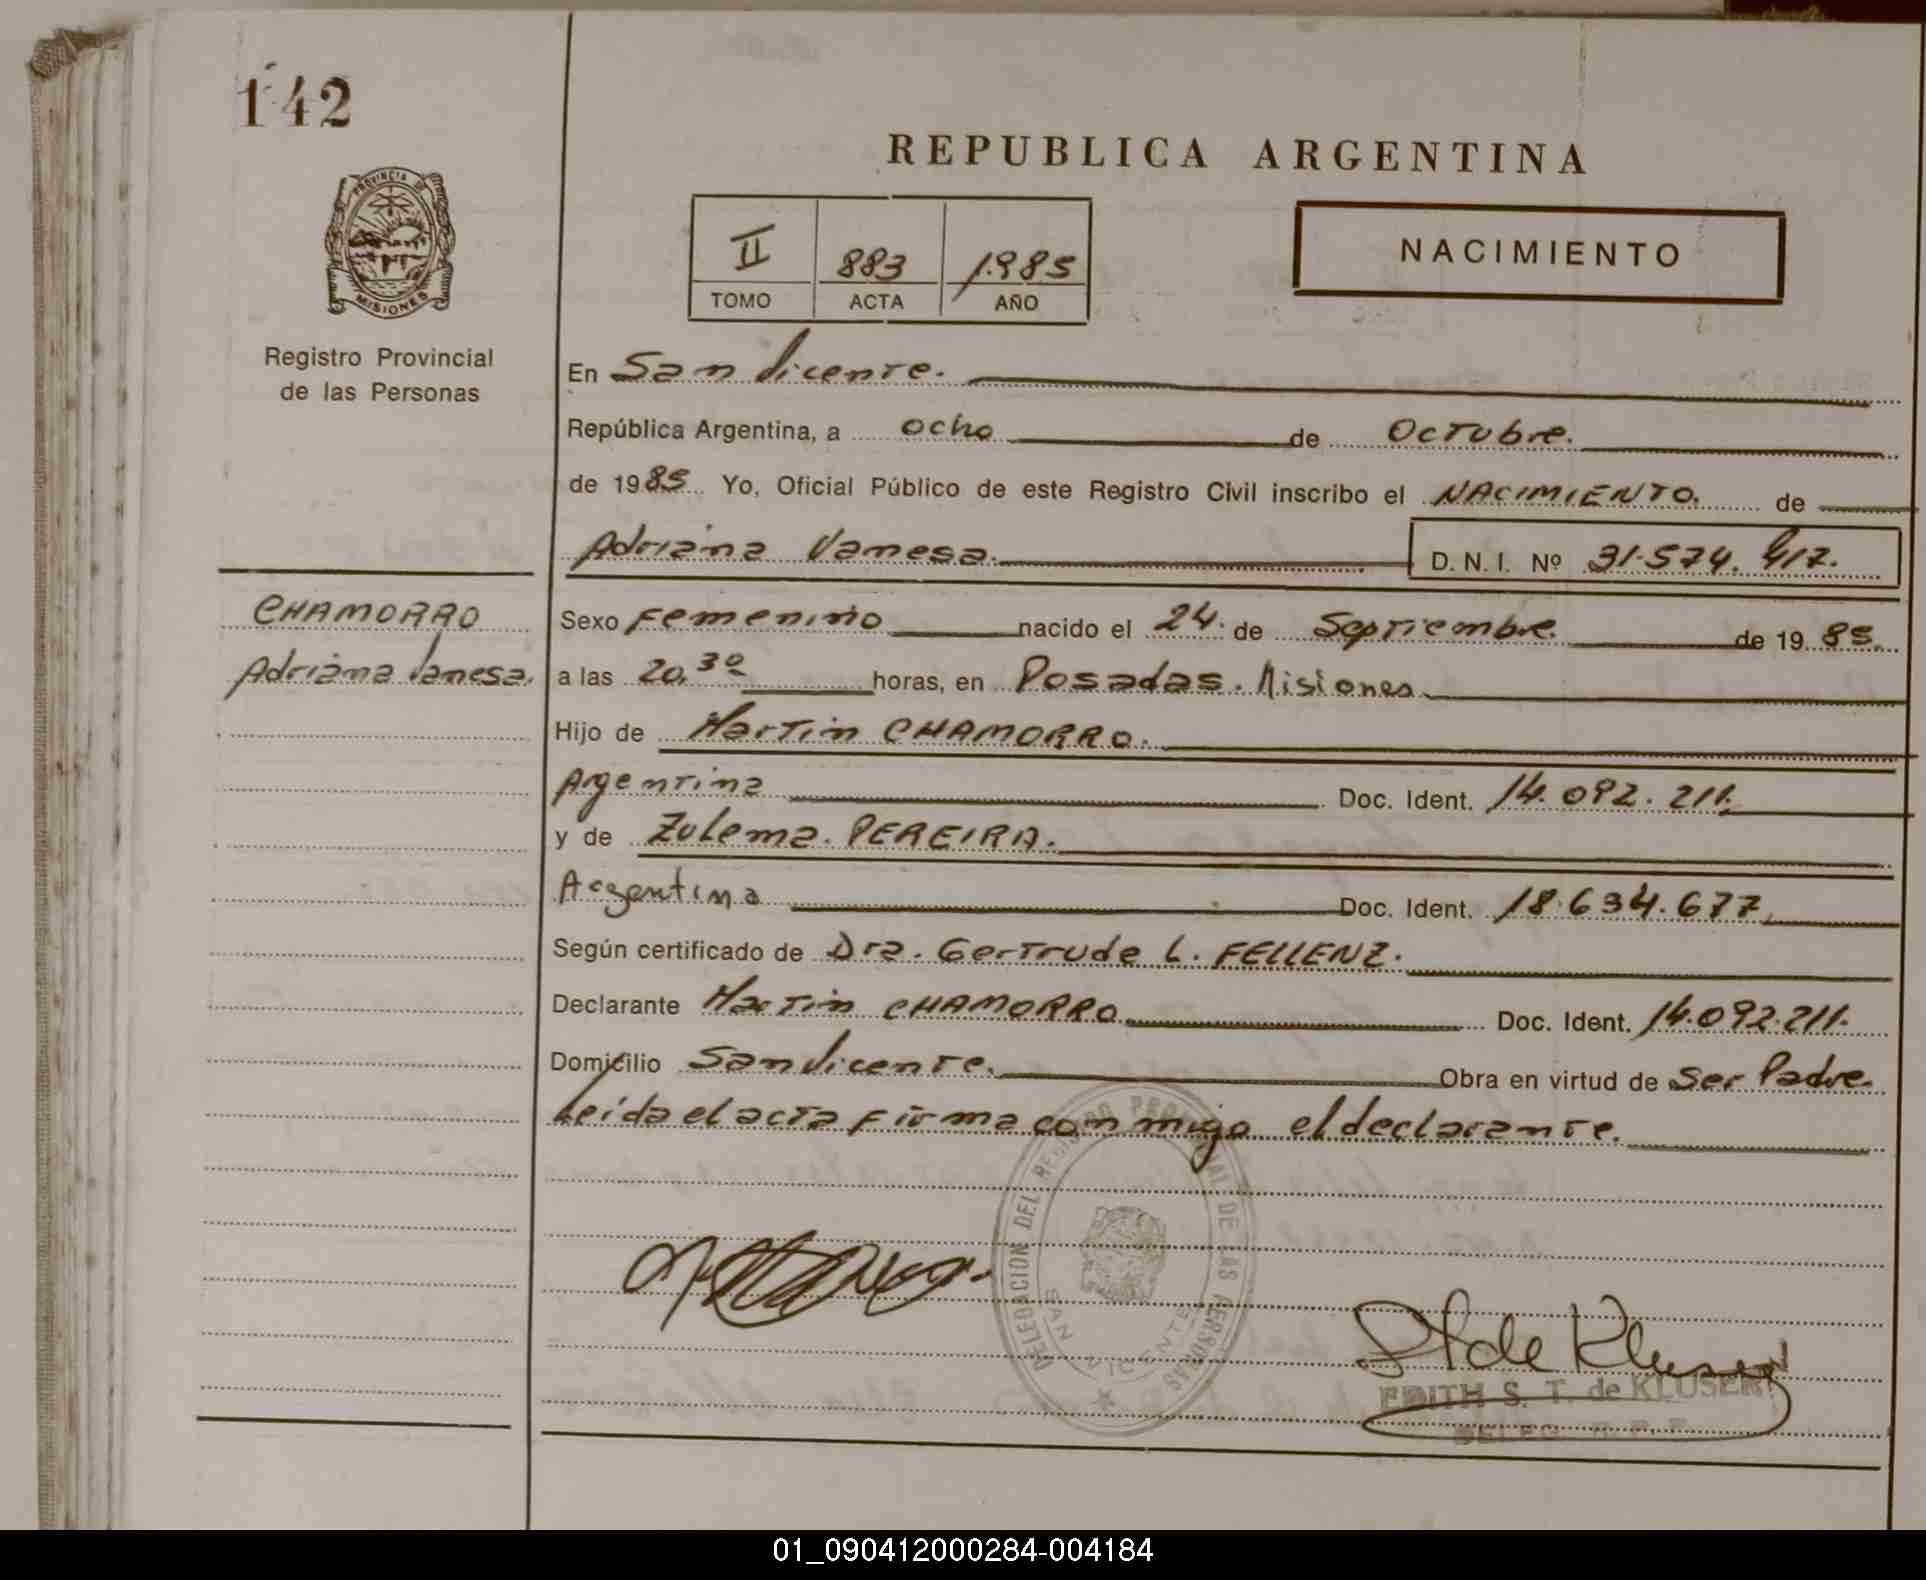 142
PROVINCIA DE
MISIONES
Registro Provincial
de las Personas
CHAMORRO
Adriana Vanesa.
REPUBLICA ARGENTINA
II 883 1.985
TOMO ACTA AÑO
NACIMIENTO
En San Vicente.
República Argentina, a ocho de Octubre.
de 1985 Yo, Oficial Público de este Registro Civil inscribo el NACIMIENTO. de
Adriana Vanesa. D. N. I. Nº 31.574.417.
Sexo Femenino nacido el 24. de Septiembre. de 1985.
a las 20,30 horas, en Posadas. Misiones
Hijo de Martin CHAMORRO.
Argentina Doc. Ident. 14.092.211.
y de Zulema. PEREIRA.
Argentina Doc. Ident. 18.634.677,
Según certificado de Dra. Gertrude L. FELLENZ.
Declarante Martin CHAMORRO Doc. Ident. 14.092.211.
Domicilio San Vicente. Obra en virtud de Ser Padre.
Leída el acta firma conmigo el declarante.
DELEGACION DEL REGISTRO PROVINCIAL DE LAS PERSONAS
SAN VICENTE
St de Kluser
EDITH S. T. de KLUSER
01_090412000284-004184